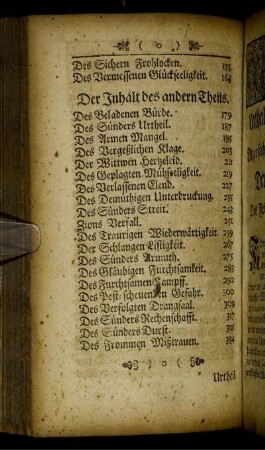 ( o )
Des Sichern Frohlocken. 155
Des Vermessenen Glückseeligkeit. 164
Der Inhalt des andern Theils.
Des Beladenen Bürde. 179
Des Sünders Urtheil. 187
Des Armen Mangel. 195
Des Vergeßlichen Klage. 203
Der Wittwen Hertzeleid. 211
Des Geplagten Mühseligkeit. 219
Des Verlassenen Elend. 227
Des Demüthigen Unterdruckung. 235
Des Sünders Streit. 243
Zions Verfall. 251
Des Traurigen Wiederwärtigkeit 259
Der Schlangen Listigkeit 267
Des Sünders Armuth.
Des Gläubigen Furchtsamkeit. 283
Des Furchtsamen Kampff. 292
Des Pest-scheuenden Gefahr. 300
Des Verfolgten Drangsaal. 309
Des Sünders Rechenschafft. 317
Des Sünders Durst.
Des Frommen Mißtrauen. 334
( o )
Urtheil